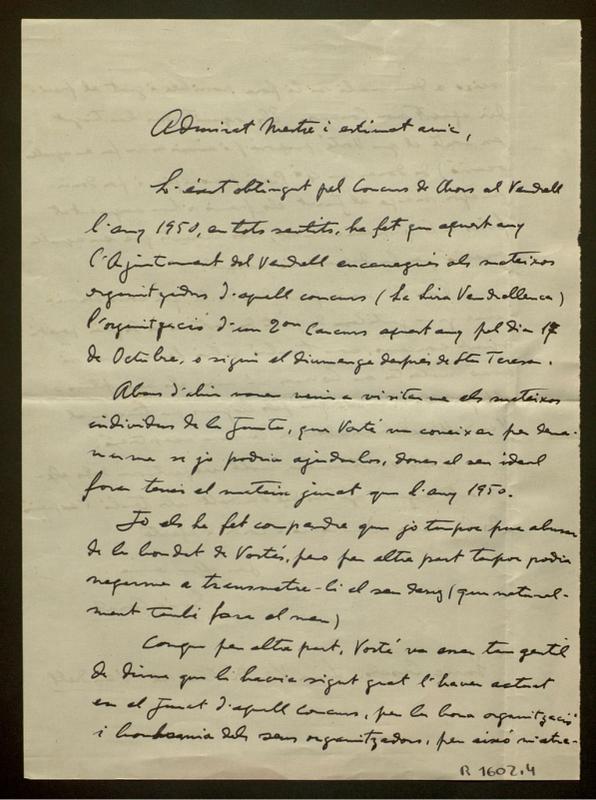 Admirat Mestre i estimat amic,
L'éxit obtingut pel Concurs de Chors al Vendrell
l'any 1950, en tots sentits, ha fet que aquest any
l'Ajuntament del Vendrell encarregués als mateixos
organitzadors d'aquell concurs (La Lira Vendrellenca)
l'organització d'un 2on Concurs aquest any pel dia 17
de Octubre, o sigui el diumenge després de Sta Teresa.
Abans d'ahir varen venir a visitarme els mateixos
individus de la Junta, que Vosté va coneixer per dema-
narme si jo podria ajudarlos, doncs el seu ideal
fora tenir el mateix jurat que l'any 1950.
Jo els he fet compendre que jo tampoc puc abusar
de la bondat de Vostés, pero per altre part tampoc podia
negarme a transmetre-li el seu desig (que natural-
ment també fora el meu)
Com que per altre part, Vosté va esser tan gentil
de dirme que li havia sigut grat l'haver actuat
en el Jurat d'aquell concurs, per la bona organització
i bonhomia dels seus organitzadors, per aixó m'atre-
R 1602.4